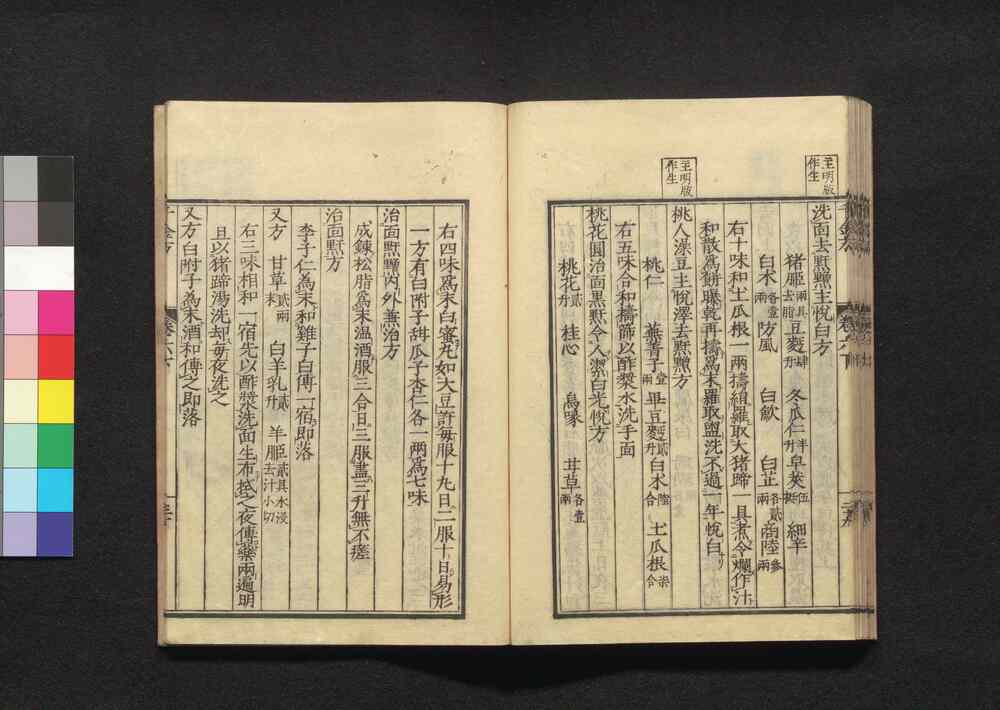 至明版
作生
洗面去䵟䵳主悅白方
猪胵兩具去脂豆麪肆升 冬瓜仁半升皁莢伍挺 細辛
白朮各壹兩防風 白蘞 白芷各貳兩商陸參兩
右十味和土瓜根一兩擣絹羅取大猪蹄一具煮令爛作汁
和散爲餅曝乾再擣爲末羅取盥洗不過一年悅白
至明版
作生
桃人澡豆主悅澤去䵟䵳方
桃仁 蕪菁子壹兩 畢豆麪貳升白朮陸合 土瓜根柒合
右五味合和擣篩以酢漿水洗手面
桃花圓治面黑䵟令人潔白光悅方
桃花貳升 桂心 烏喙 甘草各壹兩
右四味爲末白蜜丸如大豆許每服十丸日二服十日易形
一方有白附子甜瓜子杏仁各一兩爲七味
治面䵟䵳内外兼治方
成鍊松脂爲末温酒服三合日三服盡三升無不瘥
治面䵟方
李子仁爲末和雞子白傅一宿即落
又方 甘草貳兩末 白羊乳貳升 羊胵貳具水浸去汁小切
右三味相和一宿先以酢漿洗面生布拭之夜傅藥兩遍明
旦以猪蹄湯洗却每夜洗之
又方白附子爲末酒和傅之即落